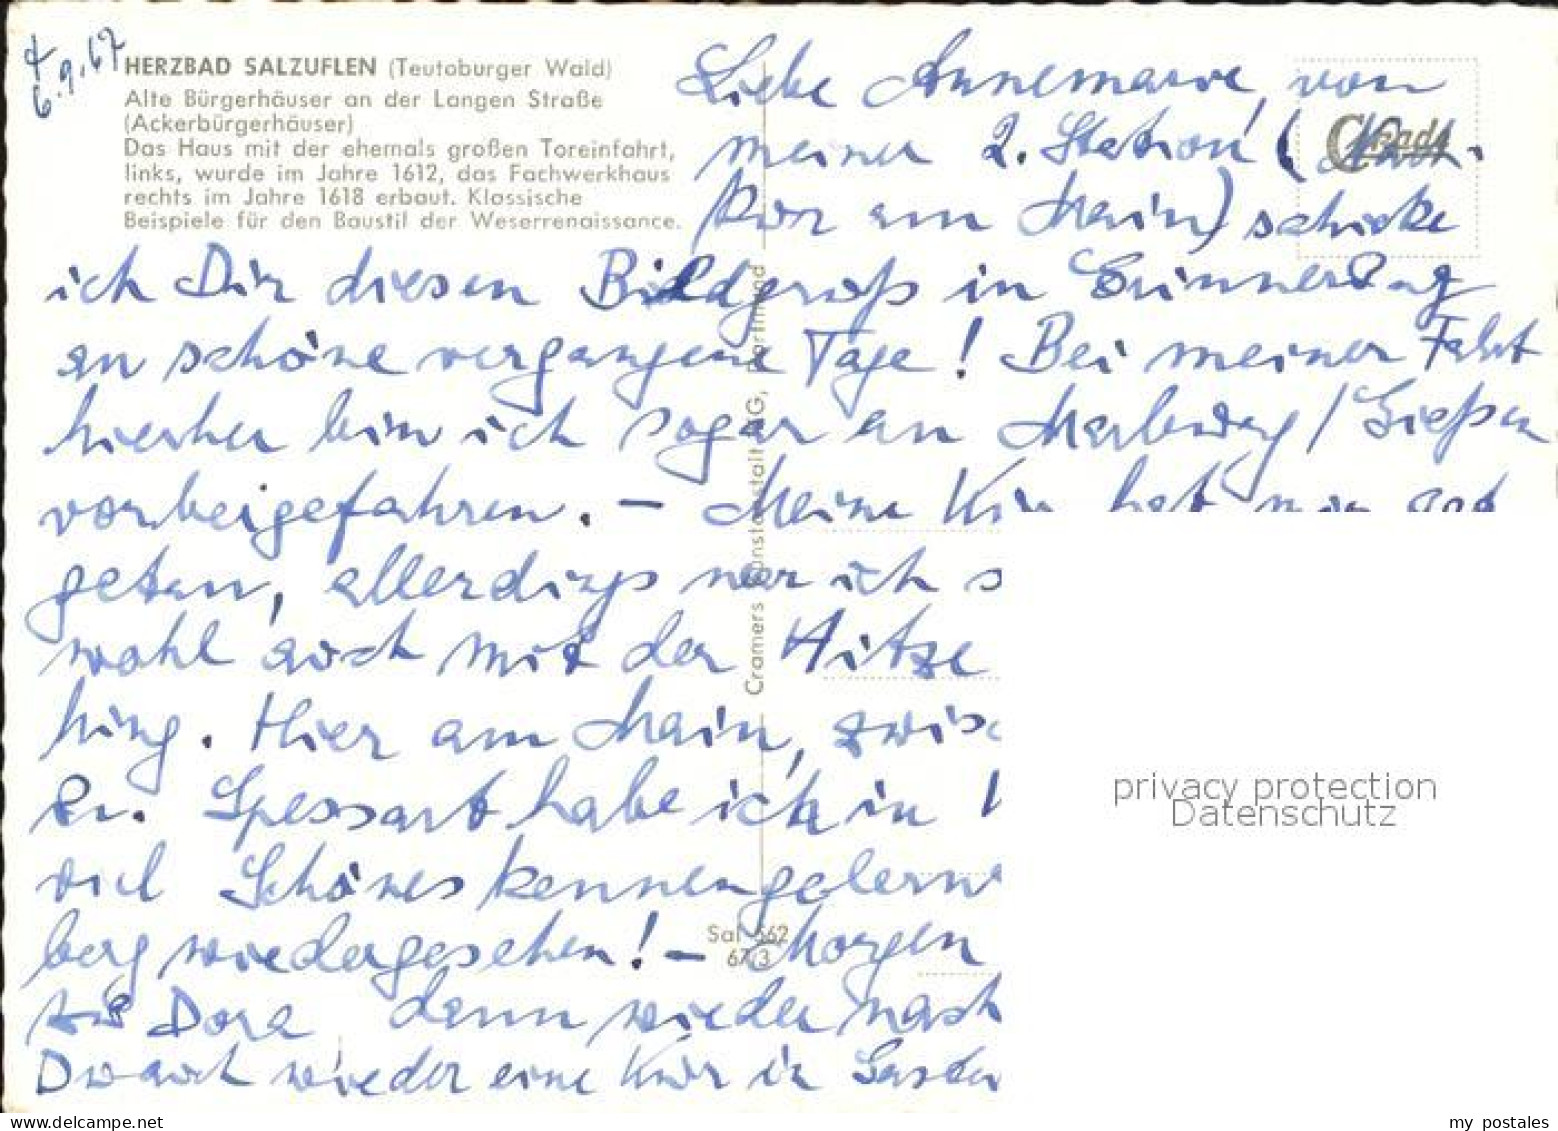 6.9.67
HERZBAD SALZUFLEN (Teutoburger Wald)
Alte Bürgerhäuser an der Langen Straße
(Ackerbürgerhäuser)
Das Haus mit der ehemals großen Toreinfahrt,
links, wurde im Jahre 1612, das Fachwerkhaus
rechts im Jahre 1618 erbaut. Klassische
Beispiele für den Baustil der Weserrenaissance.
Liebe Annemarie, von
meiner 2. Station (Nach-
kur am Main) schicke
ich Dir diesen Bildgruß in Erinnerung
an schöne vergangene Tage! Bei meiner Fahrt
hierher bin ich sogar an Marburg / Gießen
vorbeigefahren. – Meine Kur hat mir gut
getan, allerdings war ich s
wohl auch mit der Hitze
hing. Hier am Main, zwisc
u. Spessart habe ich in
viel Schönes kennengelern
berg wiedergesehen! – Morgen
zu Dora dann wieder nach
Du auch wieder eine Kur in
Cramers Kunstanstalt KG, Dortmund
Sal 562
67/3
privacy protection
Datenschutz
my postales